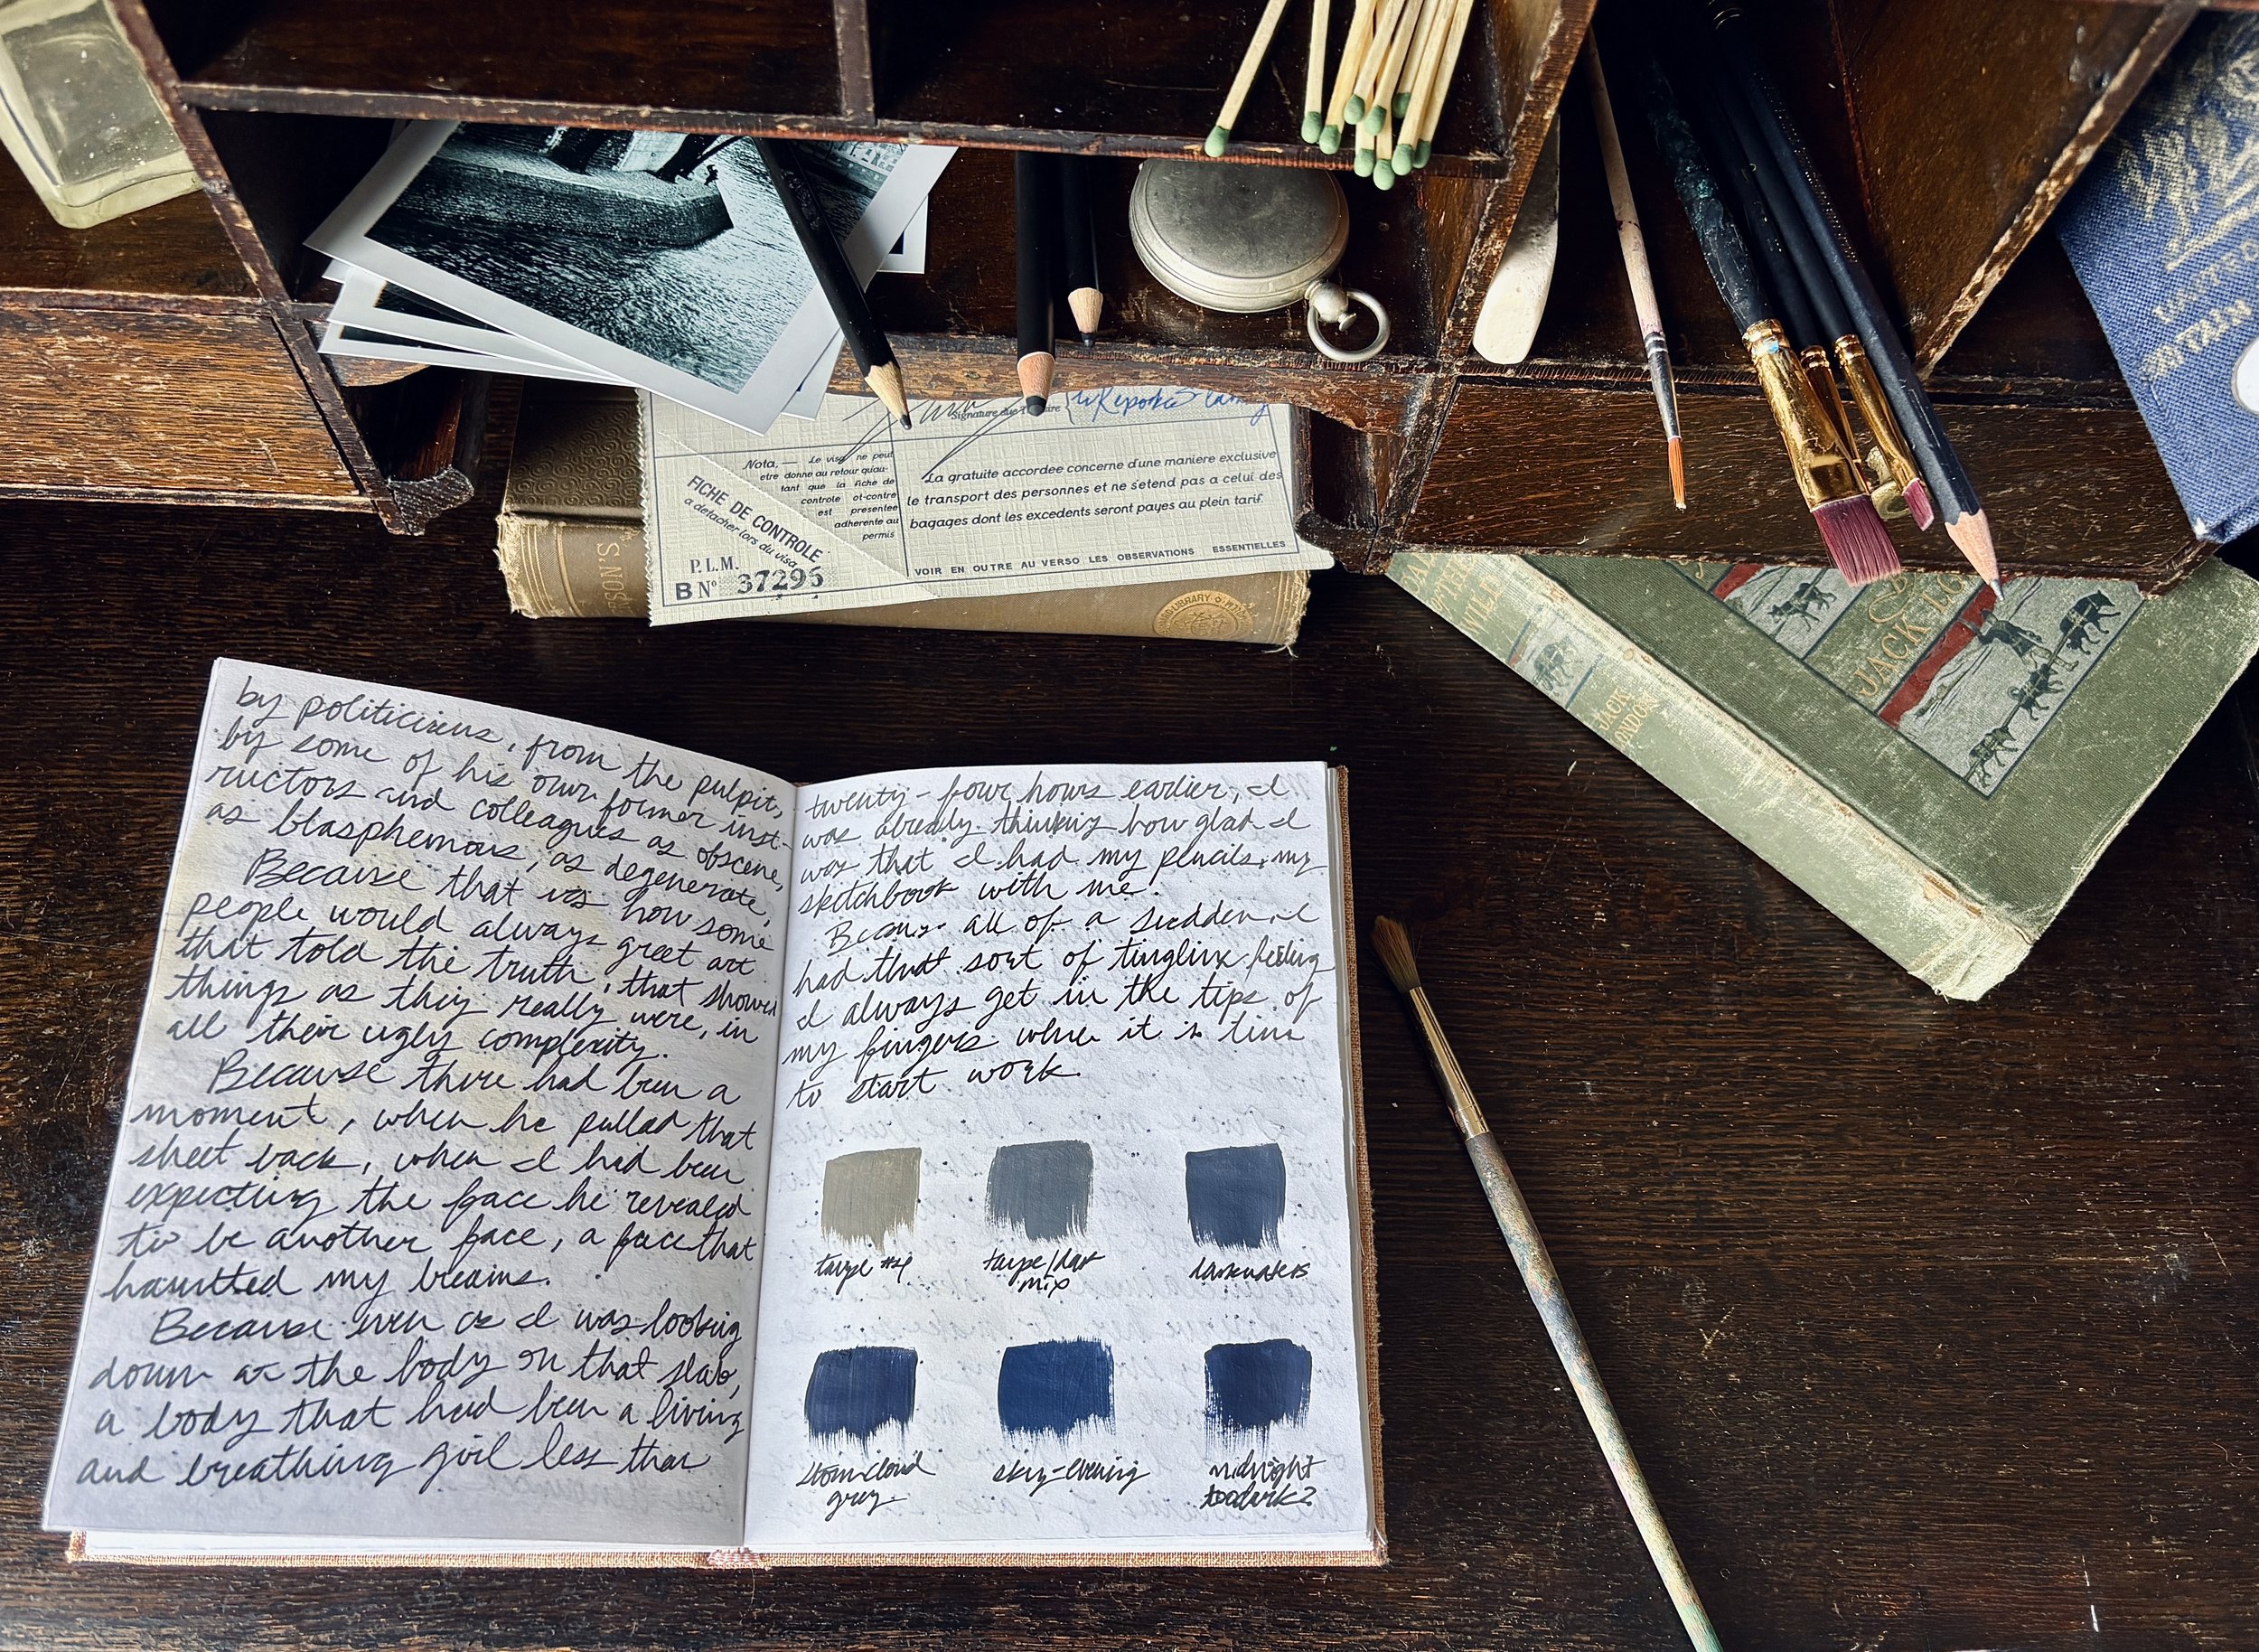 Signature du Titulaire
Nota. — Le visa ne peut
etre donne au retour quau-
tant que la fiche de
controle ot-contre
est presentee
adherente au
permis
La gratuite accordee concerne d'une maniere exclusive
le transport des personnes et ne s'etend pas a celui des
bagages dont les excedents seront payes au plein tarif.
FICHE DE CONTROLE
a detacher lors du visa
P.L.M.
B Nº 37295
VOIR EN OUTRE AU VERSO LES OBSERVATIONS ESSENTIELLES
SON'S
LIBRARY
BRITAIN
JACK LO
JACK
LONDON
by politicians, from the pulpit,
by some of his own former inst-
ructors and colleagues as obscene,
as blasphemous, as degenerate,
Because that is how some
people would always greet art
that told the truth, that showed
things as they really were, in
all their ugly complexity.
Because there had been a
moment, when he pulled that
sheet back, when I had been
expecting the face he revealed
to be another face, a face that
haunted my dreams.
Because even as I was looking
down at the body on that slab,
a body that had been a living
and breathing girl less than
twenty-four hours earlier, I
was already thinking how glad I
was that I had my pencils, my
sketchbook with me.
Because all of a sudden I
had that sort of tingling feeling
I always get in the tips of
my fingers when it is time
to start work.
taupe #4
taupe/dark
mix
darkwaters
stormcloud
grey
sky-evening
midnight
toodark?